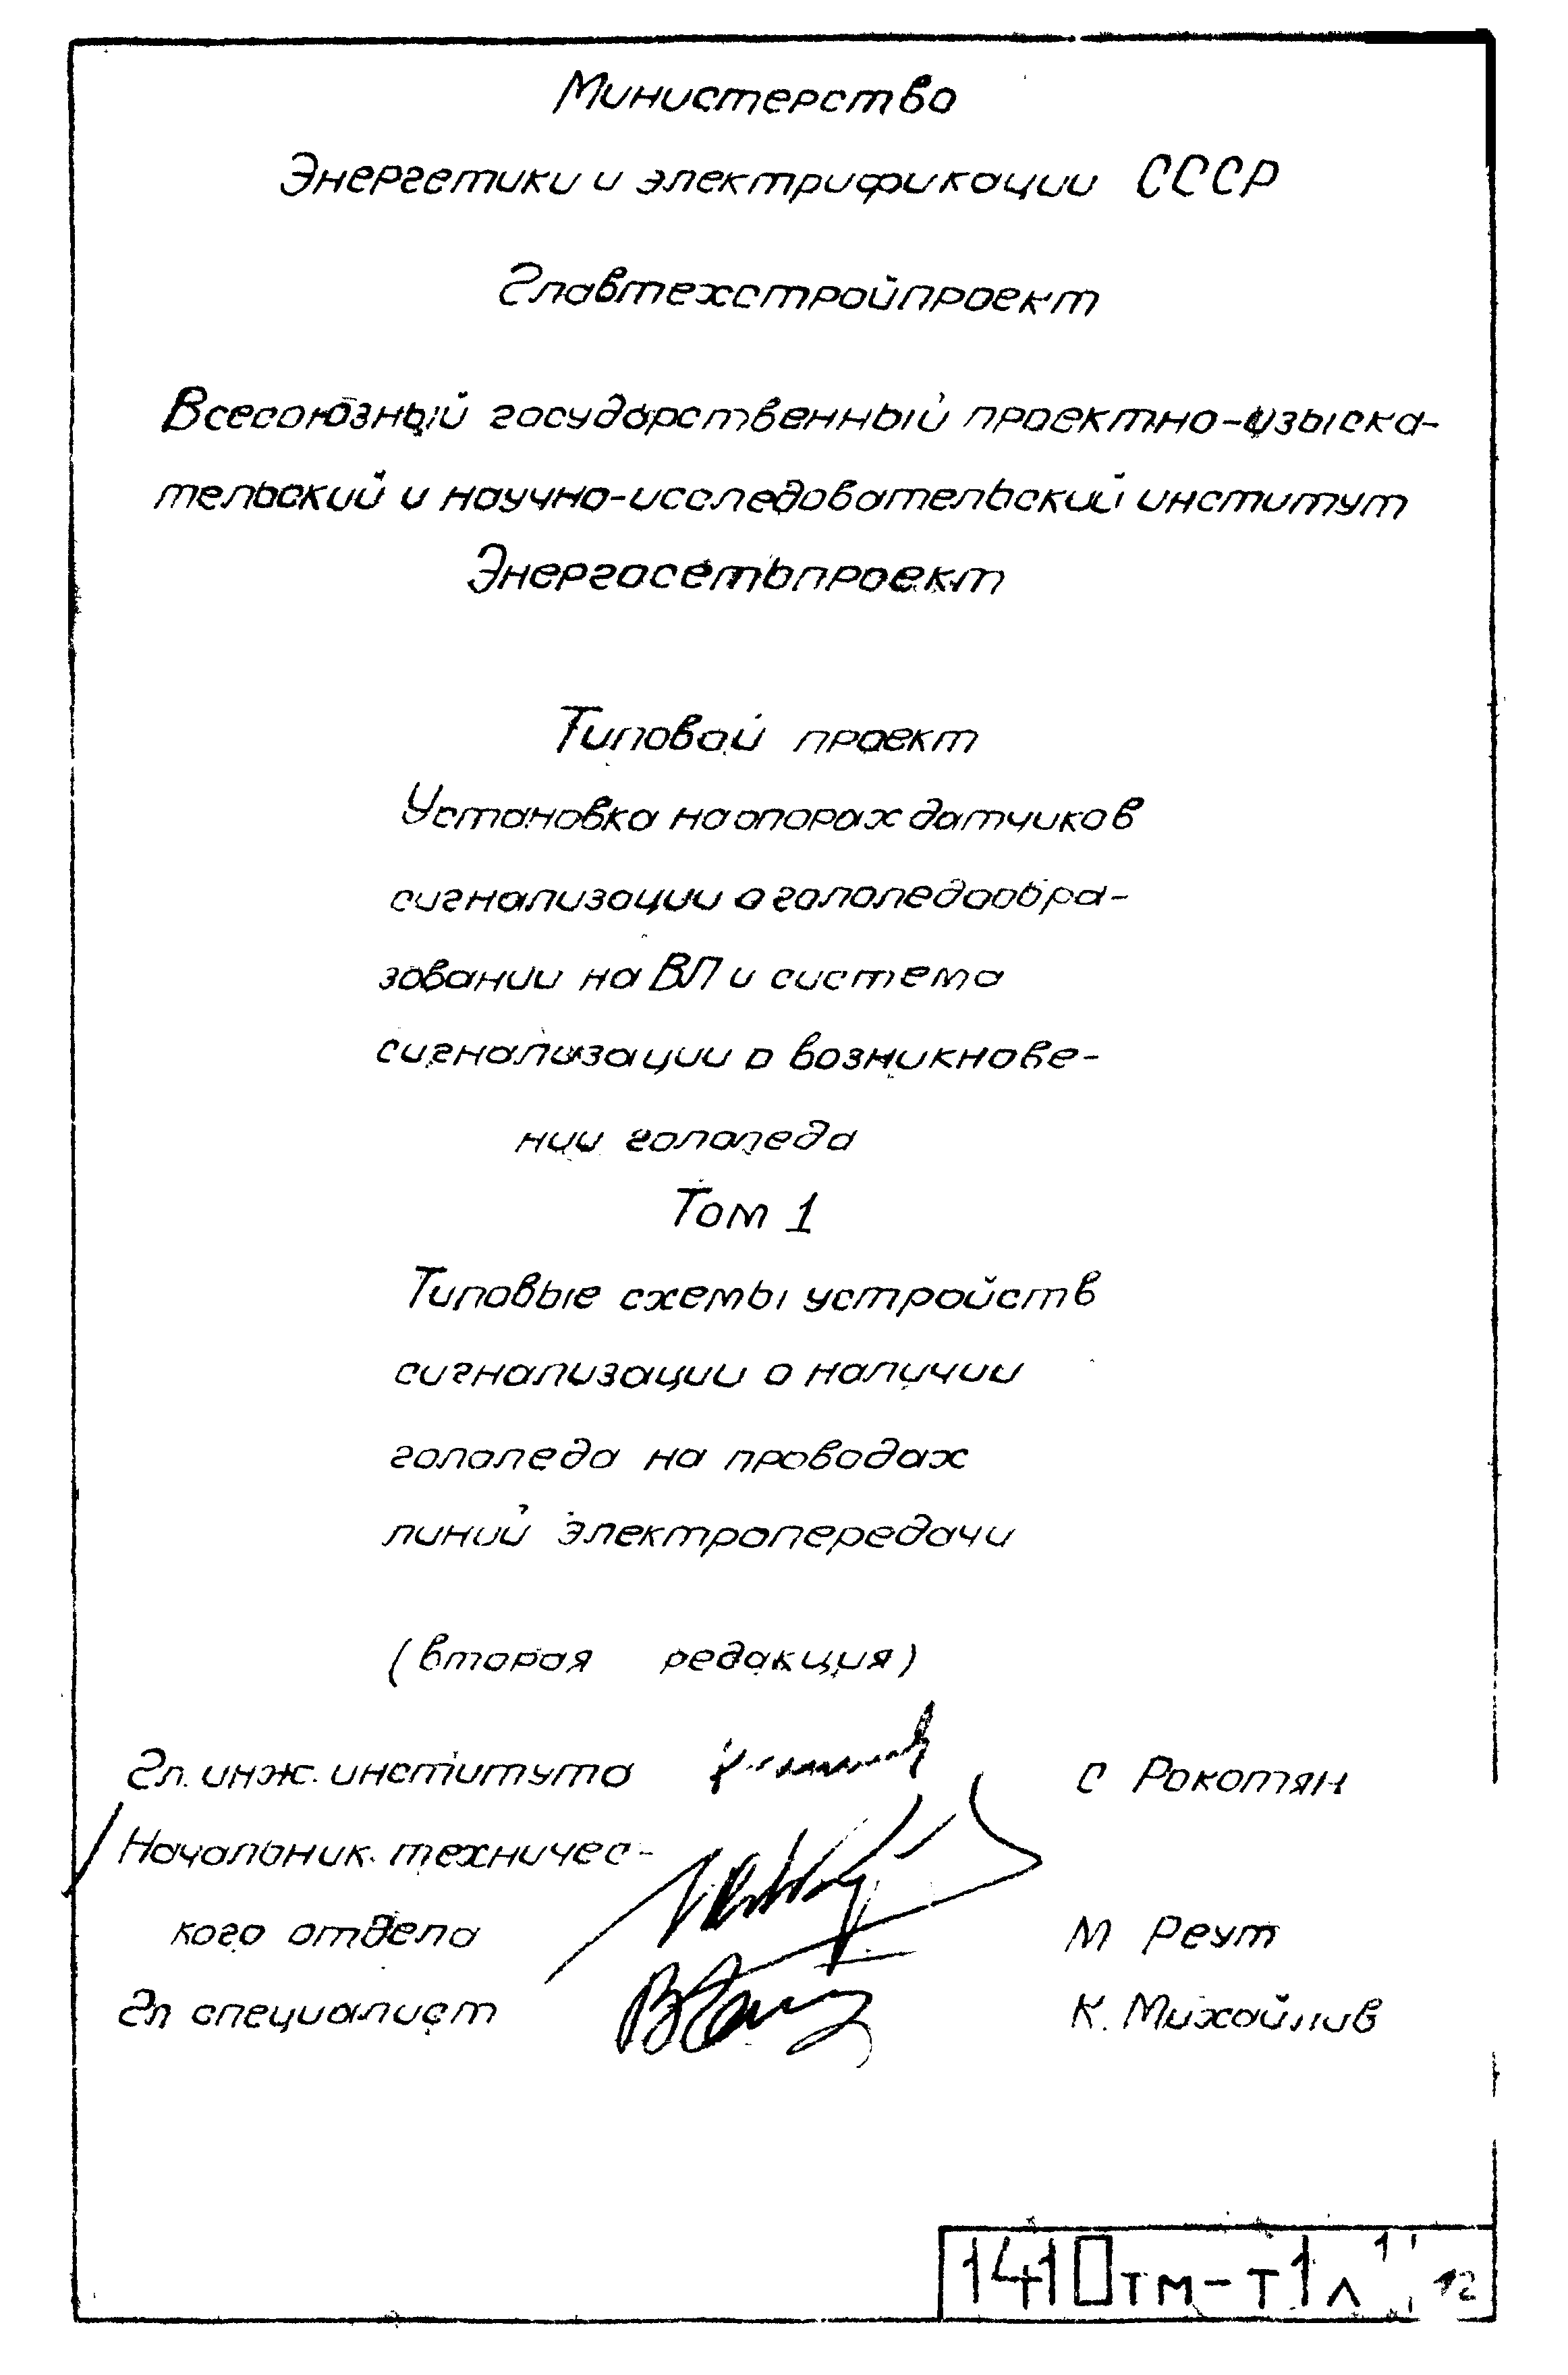 Министерство
Энергетики и электрификации СССР
Главтехстройпроект
Всесоюзный государственный проектно-изыска-
тельский и научно-исследовательский институт
Энергосетьпроект
Типовой проект
Установка на опорах датчиков
сигнализации о гололедообра-
зовании на ВЛ и система
сигнализации о возникнове-
нии гололеда
Том 1
Типовые схемы устройств
сигнализации о наличии
гололеда на проводах
линий электропередачи
(вторая редакция)
Гл. инж. института С Рокотян
Начальник техничес-
кого отдела М Реут
Гл специалист К. Михайлив
1410тм-т1л